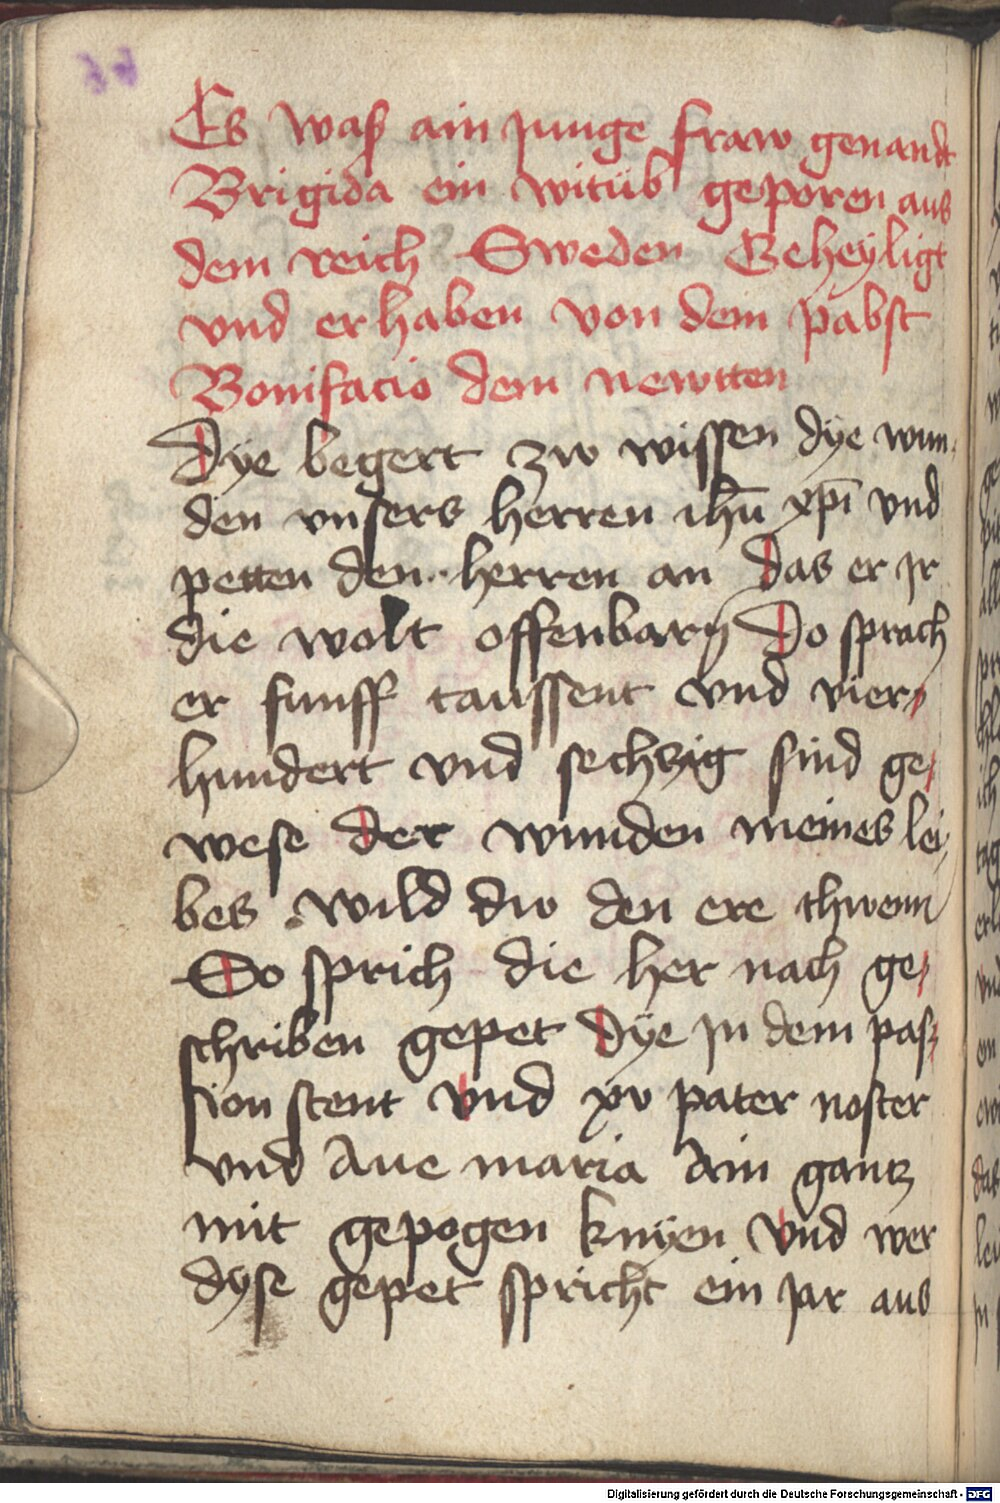 Es waß ain junge fraw genandt
Brigida ein witüb geporen aus
dem reich Sweden Geheyligt
vnd erhaben von dem pabst
Bonifacio dem newtten
Dÿe begert zw wissen dÿe wun
den vnsers herren ihū xpī vnd
petten den herren an das er jr
die wolt offenbarn Do sprach
er funff taussent vnd vier
hundert vnd sechzig sind ge
wese der wunden meines lei
bes wild dw den ere thwenn
So sprich die her nach ge
schriben gepet dÿe jn dem pas
sion stent vnd xv pater noster
vnd Aue maria Ain gantz
mit gepogen knÿen vnd wer
dyse gepet spricht ein jar aus
Digitalisierung gefördert durch die Deutsche Forschungsgemeinschaft - DFG